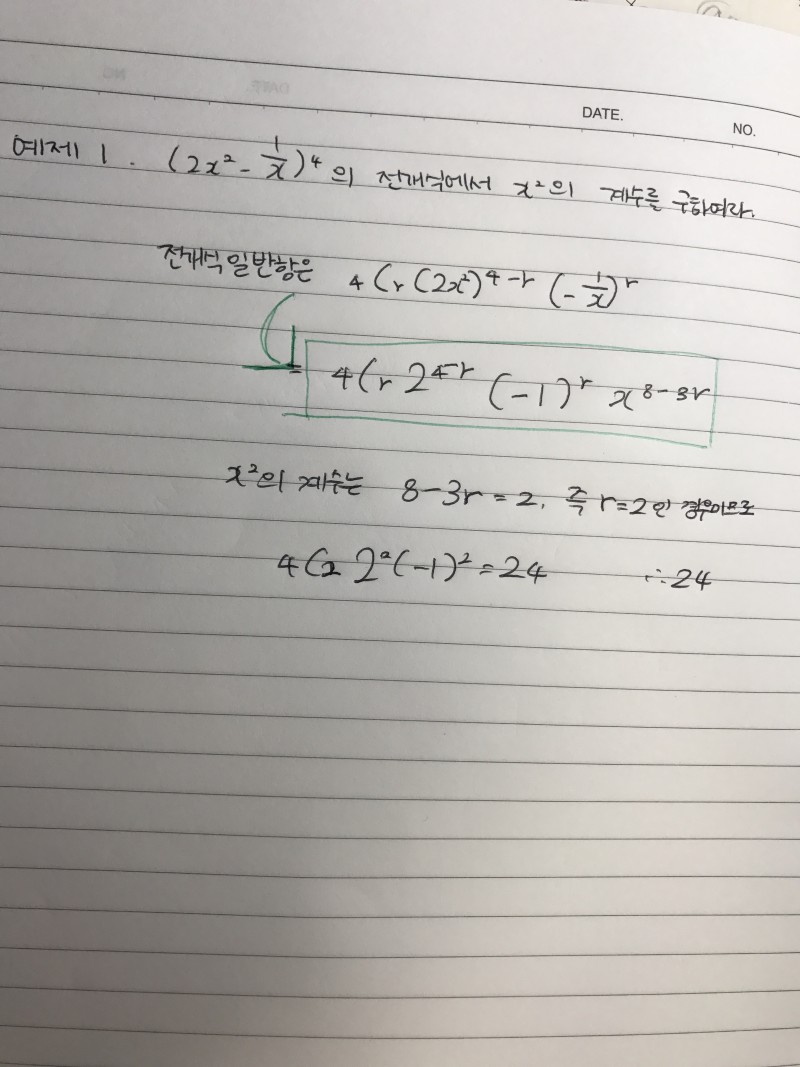 DATE.
NO.
예제 1. (2x² - 1/x)⁴ 의 전개식에서 x²의 계수를 구하여라.
전개식 일반항은 ₄Cᵣ (2x²)⁴⁻ʳ (-1/x)ʳ
= ₄Cᵣ 2⁴⁻ʳ (-1)ʳ x⁸⁻³ʳ
x²의 계수는 8-3r=2, 즉 r=2인 경우이므로
₄C₂ 2²(-1)²=24 ∴24